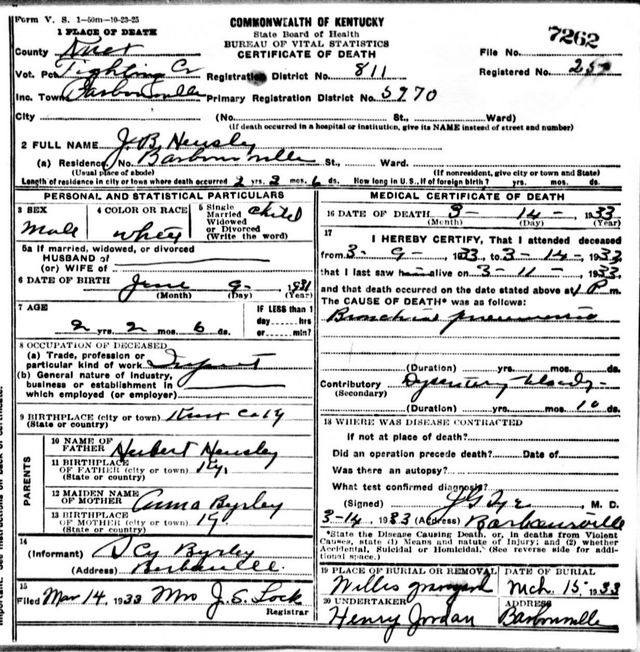 Form V. S. 1—50m—10-23-25
COMMONWEALTH OF KENTUCKY
State Board of Health
BUREAU OF VITAL STATISTICS
CERTIFICATE OF DEATH
7262
1 PLACE OF DEATH
County Knox
File No.
Vot. Pct. Fighting Cr
Registration District No. 811
Registered No.
Inc. Town Barbourville
Primary Registration District No. 5970
City (No. St., Ward)
(If death occurred in a hospital or institution, give its NAME instead of street and number)
2 FULL NAME J. B. Hensley
(a) Residence, No. Barbourville St., Ward.
(Usual place of abode) (If nonresident, give city or town and State)
Length of residence in city or town where death occurred 2 yrs. 2 mos. 6 ds. How long in U. S., if of foreign birth? yrs. mos. ds.
PERSONAL AND STATISTICAL PARTICULARS
3 SEX
Male
4 COLOR OR RACE
5 Single
Married
Widowed
or Divorced
(Write the word)
Child
5a If married, widowed, or divorced
HUSBAND of
(or) WIFE of
6 DATE OF BIRTH June 9- 1931
(Month) (Day) (Year)
7 AGE
2 yrs. 2 mos. 6 ds.
IF LESS than 1
day hrs
or min?
8 OCCUPATION OF DECEASED
(a) Trade, profession or
particular kind of work Infant
(b) General nature of industry,
business or establishment in
which employed (or employer)
9 BIRTHPLACE (city or town) Knox
(State or country)
PARENTS
10 NAME OF
FATHER Hensley
11 BIRTHPLACE
OF FATHER (city or town) Ky.
(State or country)
12 MAIDEN NAME
OF MOTHER Anna Byrley
13 BIRTHPLACE
OF MOTHER (city or town) Ky
(State or country)
14
(Informant) Byrley
(Address)
15
Filed Mar 14, 1933 Mrs J. S. Lock
Registrar
MEDICAL CERTIFICATE OF DEATH
16 DATE OF DEATH 3- 14- 1933
(Month) (Day) (Year)
17
I HEREBY CERTIFY, That I attended deceased
from 3- 9- 1933, to 3-14- 1933
that I last saw h alive on 3-11- 1933,
and that death occurred on the date stated above at 1 P m.
The CAUSE OF DEATH* was as follows:
Bronchial pneumonia
(Duration) yrs. mos. ds.
Contributory Dysentery bloody-
(Secondary)
(Duration) yrs. mos. 10 ds.
18 WHERE WAS DISEASE CONTRACTED
If not at place of death?
Did an operation precede death? Date of
Was there an autopsy?
What test confirmed diagnosis?
(Signed) M. D.
3-14, 1933 (Address) Barbourville
*State the Disease Causing Death, or, in deaths from Violent
Causes, state 1) Means and nature of Injury; and (2) whether
Accidental, Suicidal or Homicidal. (See reverse side for addi-
tional space.)
19 PLACE OF BURIAL OR REMOVAL
Willis graveyard
DATE OF BURIAL
Mch. 15- 1933
20 UNDERTAKER
Henry Jordan
ADDRESS
Barbourville